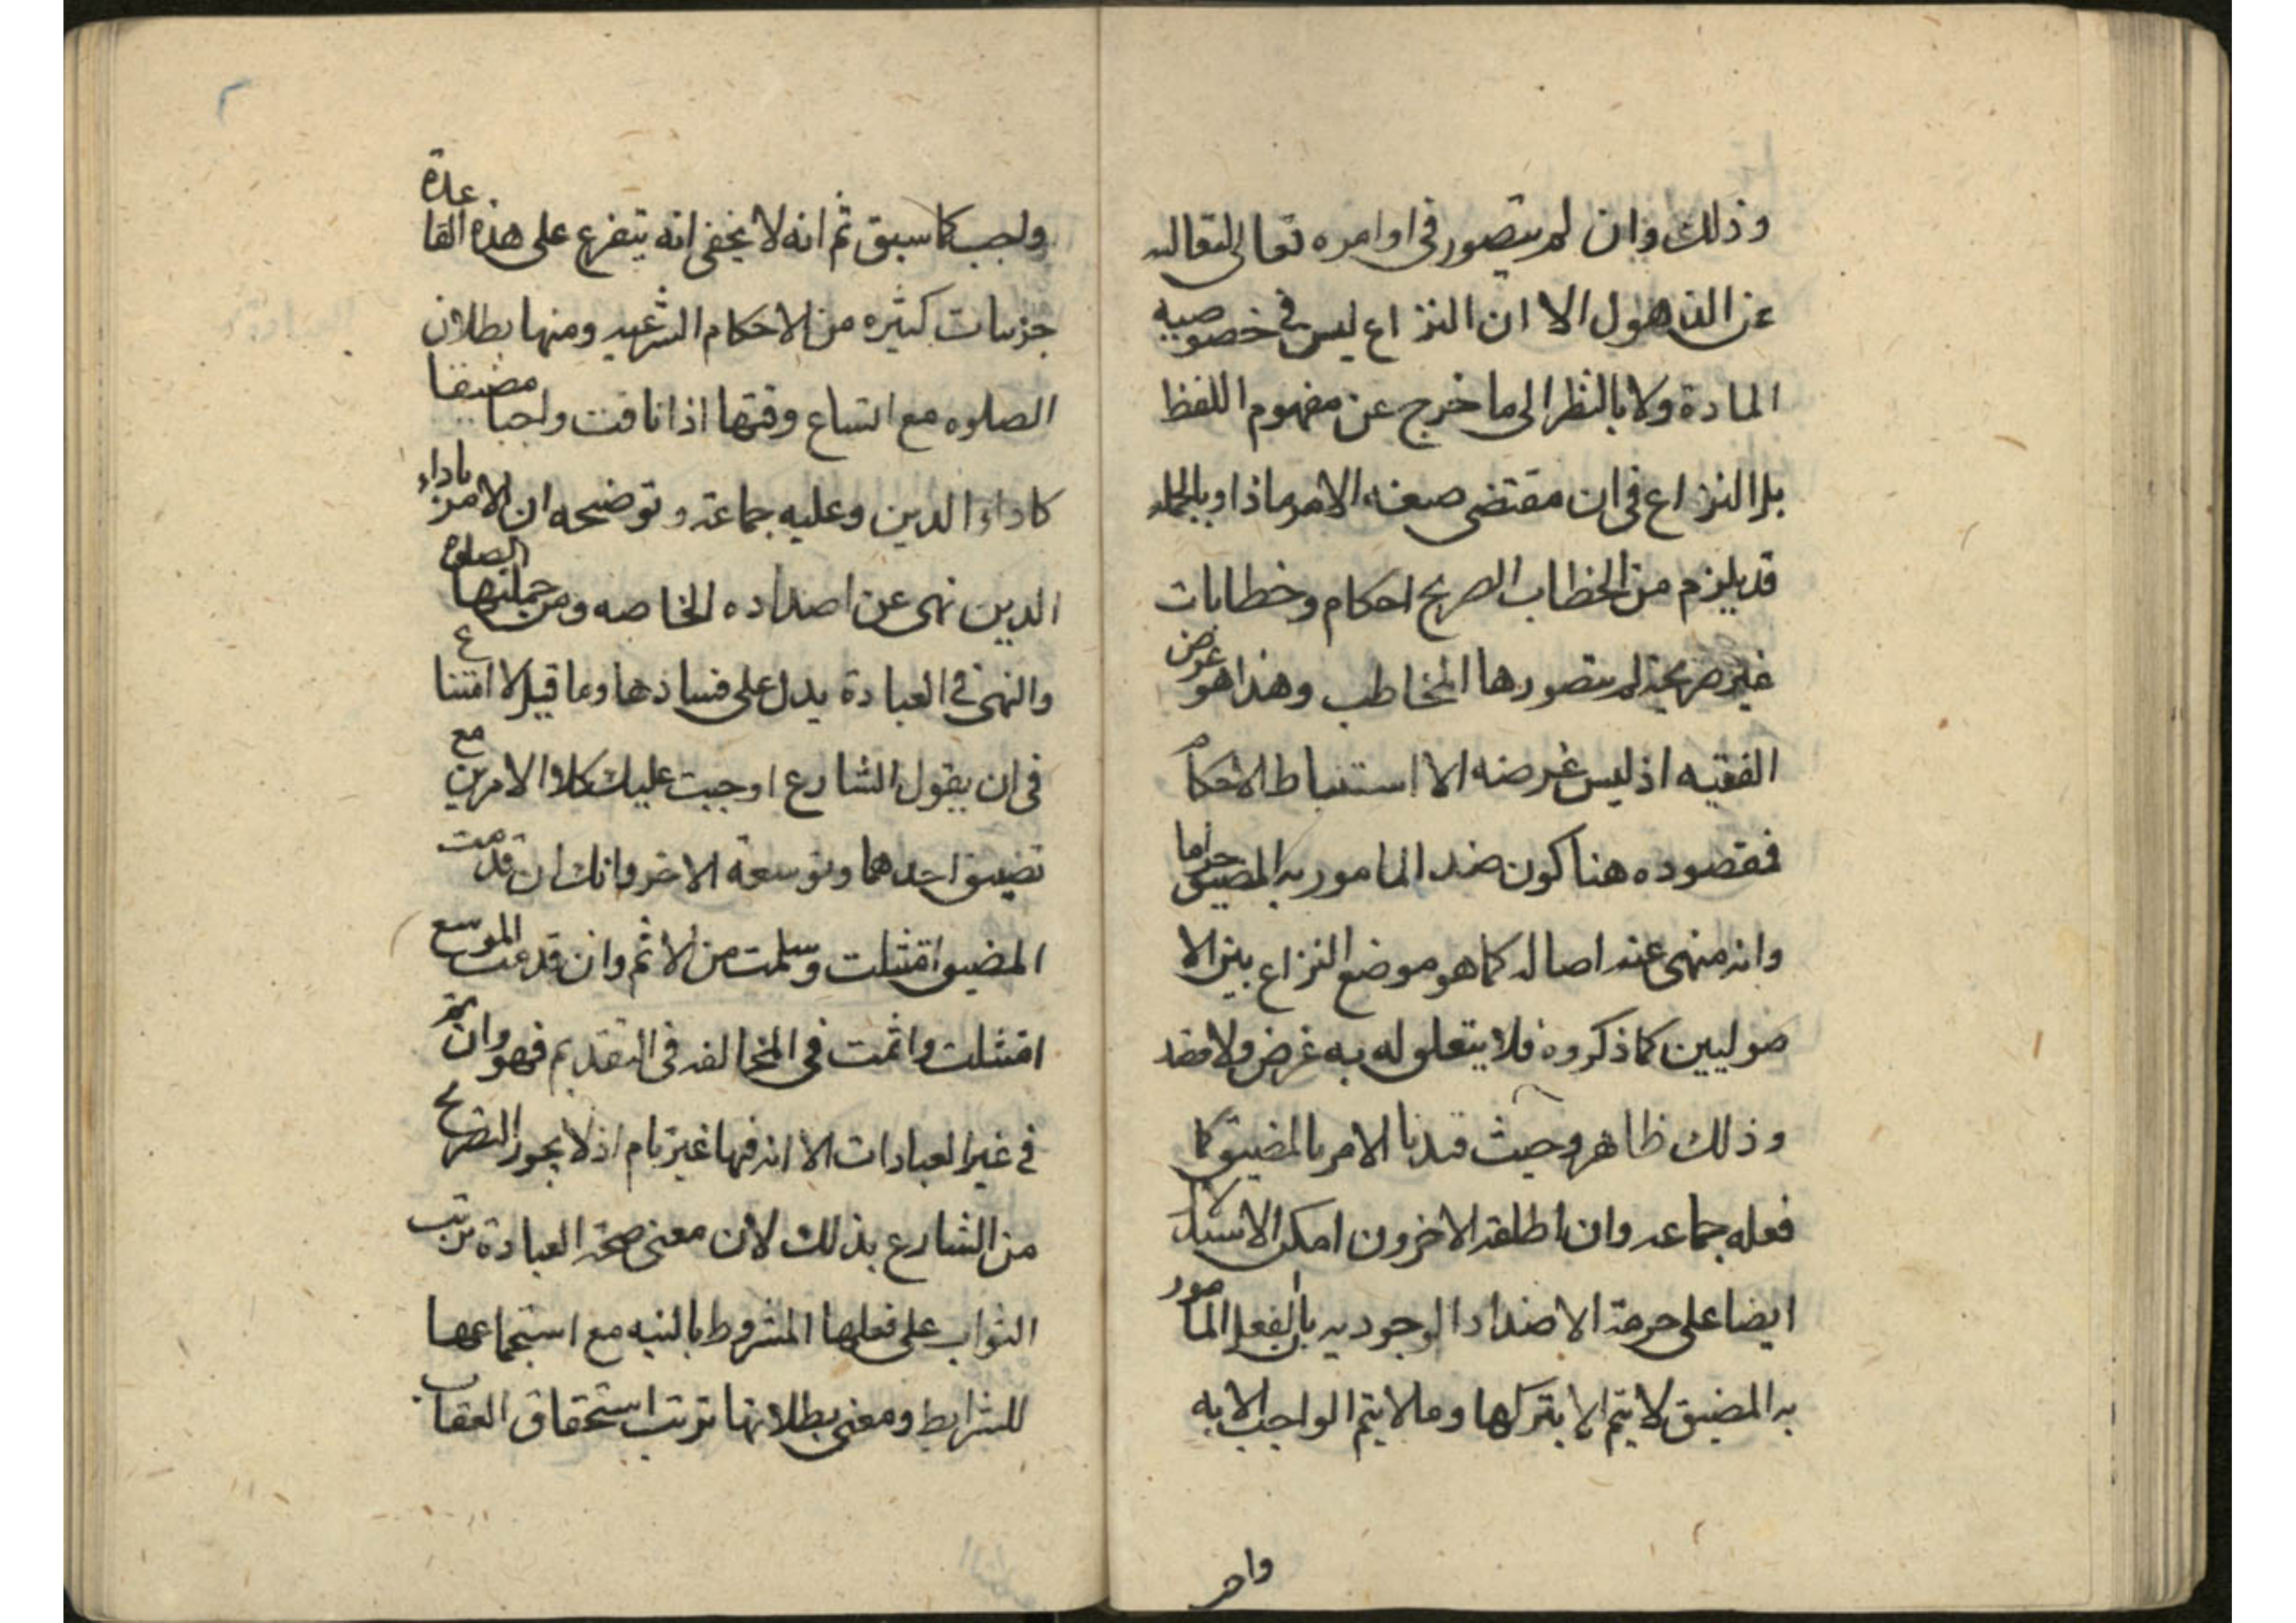 وذلك وان لم يتصور في اوامره تعالى لتعاليه
عن الذهول الا ان النزاع ليس في خصوصيه
المادة ولا بالنظر الى ما خرج عن مفهوم اللفظ
بل النزاع في ان مقتضى صيغه الامر ماذا وبالجمله
قد يلزم من الخطاب الصريح احكام وخطابات
غير صريحة لم يتصورها المخاطب وهذا هو غرض
الفقيه اذ ليس غرضه الا استنباط الاحكام
فمقصوده هنا كون ضد المامور به المضيق حراما
وانه منهى عنه اصاله كما هو موضع النزاع بين الا
صوليين كما ذكروه فلا يتعلق له به غرض ولا
وذلك ظاهر وحيث قيدنا الامر بالمضيق كما
فعله جماعه وان اطلقه الاخرون امكن الاستدلال
ايضا على حرمة الاضداد الوجوديه بان الفعل المامور
به المضيق لا يتم الا بتركها وما لا يتم الواجب الا به
واجب
واجب كما سبق ثم انه لا يخفى انه يتفرع على هذه القاعدة
جزييات كثيره من الاحكام الشرعيه ومنها بطلان
الصلوه مع اتساع وقتها اذا نافت واجبا مضيقا
كاداء الدين وعليه جماعة وتوضيحه ان الامر باداء
الدين نهى عن اضداده الخاصه ومن جملتها الصلوة
والنهى في العبادة يدل على فسادها وما قيل لا امتناع
في ان يقول الشارع اوجبت عليك كلا الامرين مع
تضييق احدهما وتوسعة الاخر وانك ان قدمت
المضيق امتثلت وسلمت من الاثم وان قدمت الموسع
امتثلت واثمت في المخالفه في التقديم فهو وان تم
في غير العبادات الا انه فيها غير تام اذ لا يجوز التصريح
من الشارع بذلك لان معنى صحة العبادة ترتب
الثواب على فعلها المشروط بالنيه مع استجماعها
للشرايط ومعنى بطلانها ترتب استحقاق العقاب